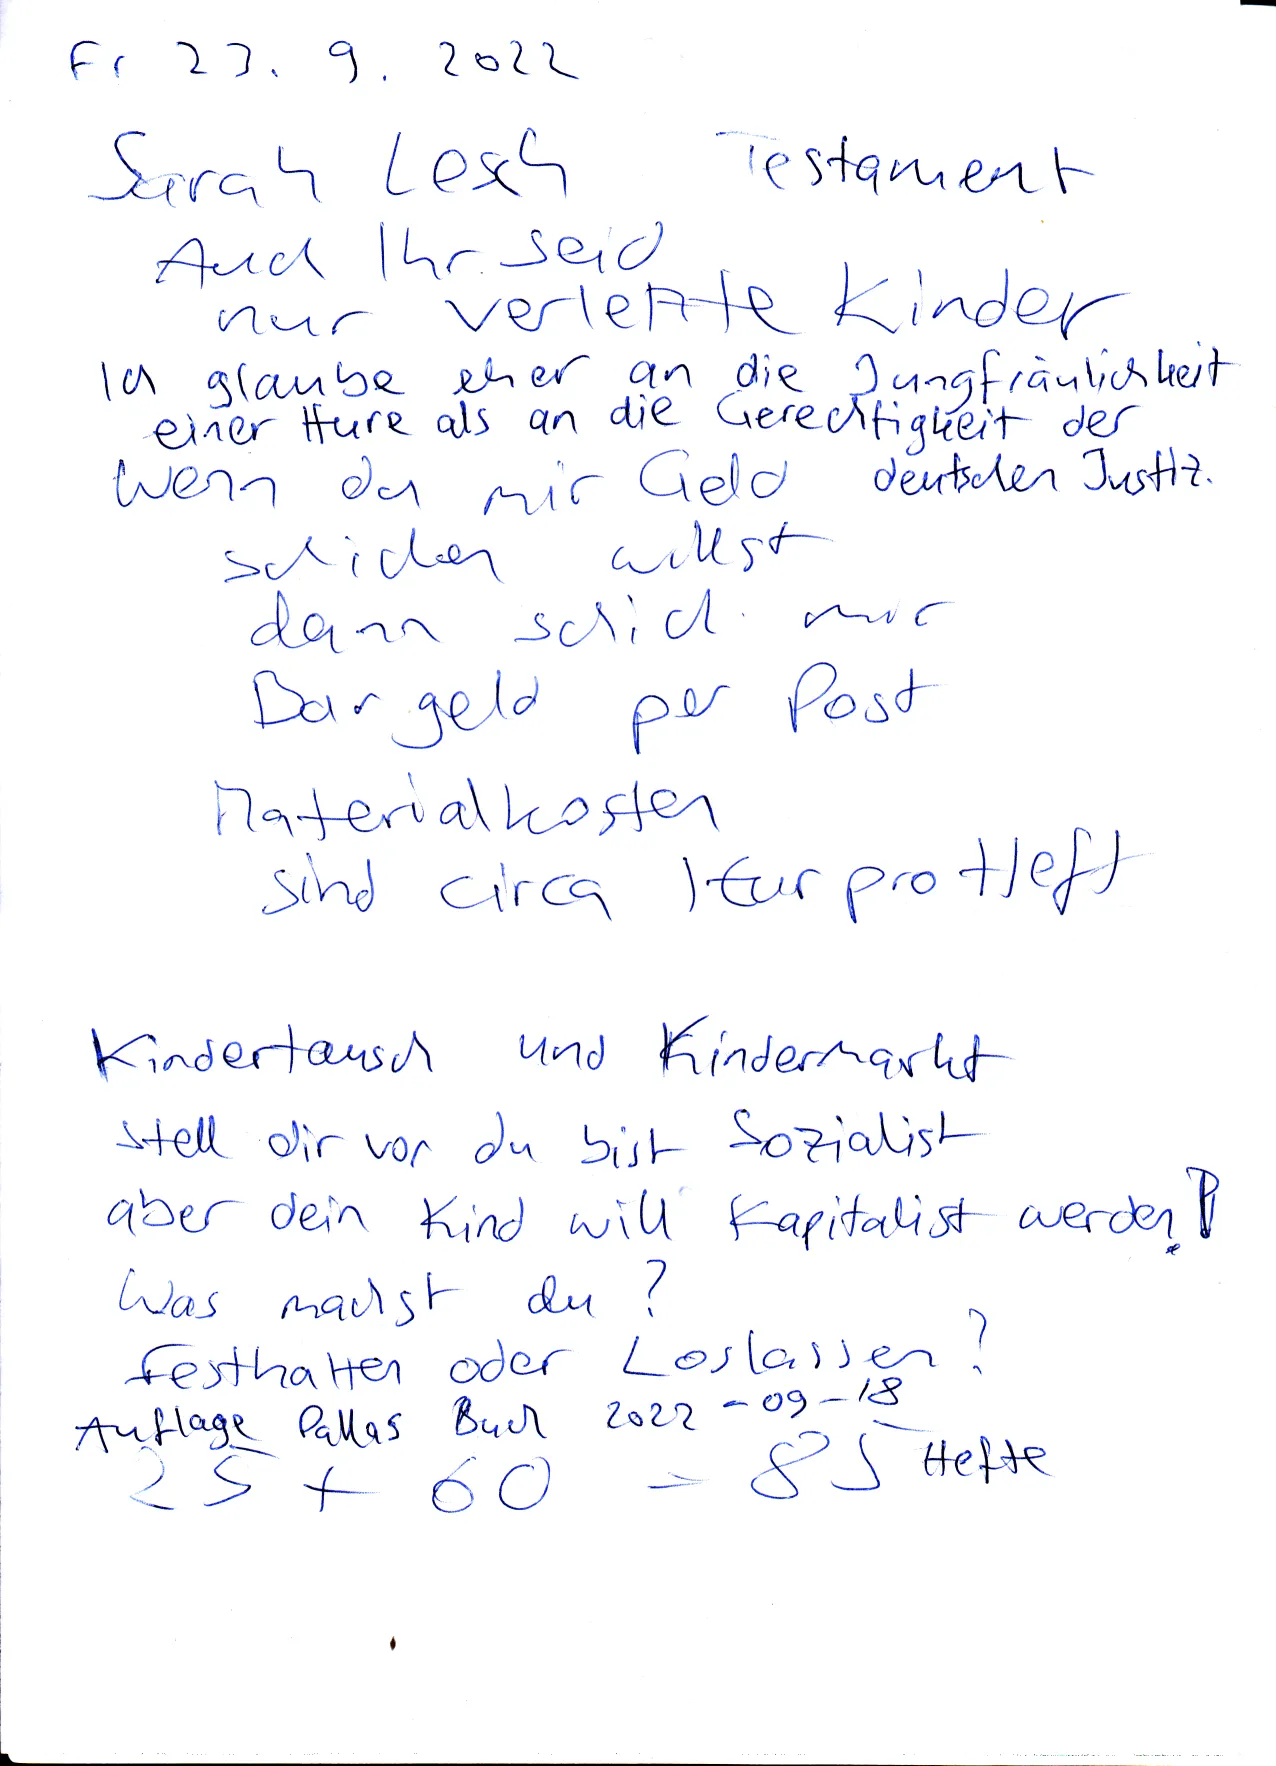 Fr 23. 9. 2022
Sarah Lesch Testament
Auch Ihr seid
nur verletzte Kinder
Ich glaube eher an die Jungfräulichkeit
einer Hure als an die Gerechtigkeit der
deutschen Justiz.
Wenn du mir Geld
schicken willst
dann schick mir
Bargeld per Post
Materialkosten
sind circa 1 Eur pro Heft
Kindertausch und Kindermarkt
stell dir vor du bist Sozialist
aber dein Kind will Kapitalist werden!
Was machst du?
Festhalten oder Loslassen?
Auflage Pallas Buch 2022-09-18
25 + 60 = 85 Hefte